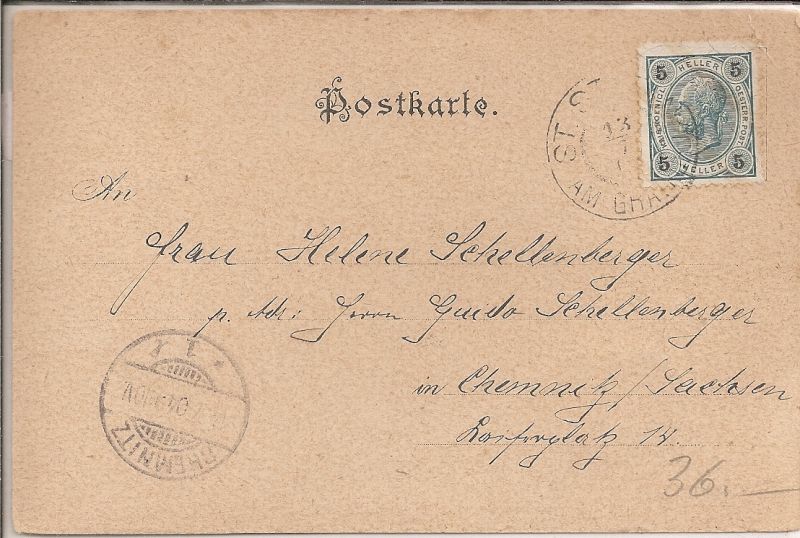 Postkarte.
5 HELLER 5
KAISERL. KÖNIGL. OESTERR. POST.
5 HELLER 5
ST.
AM
An
Frau Helene Schellenberger
p. Adr: Herrn Guido Schellenberger
in Chemnitz/Sachsen
14.
CHEMNITZ
36.—